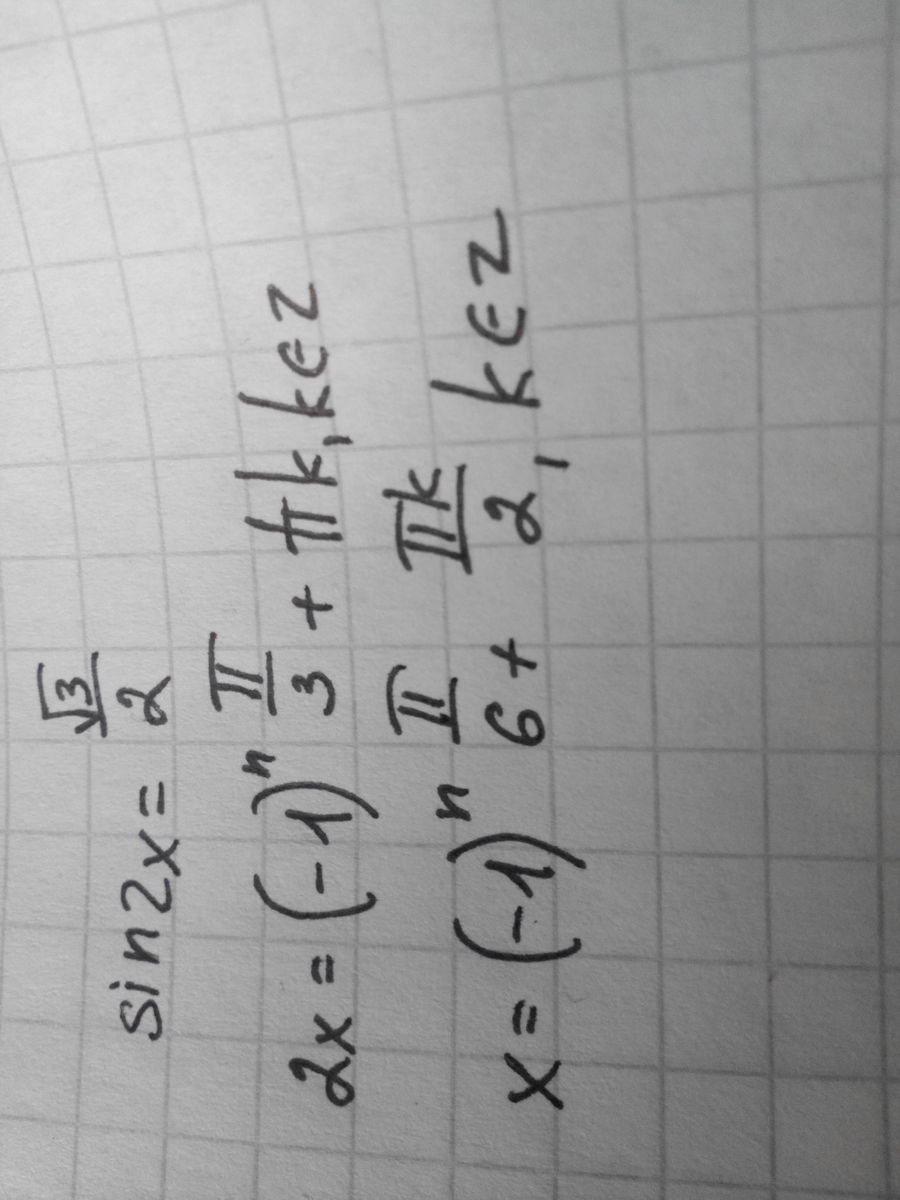 sin2x = √3/2
2x = (-1)ⁿ π/3 + πk, k∈z
x = (-1)ⁿ π/6 + πk/2, k∈z